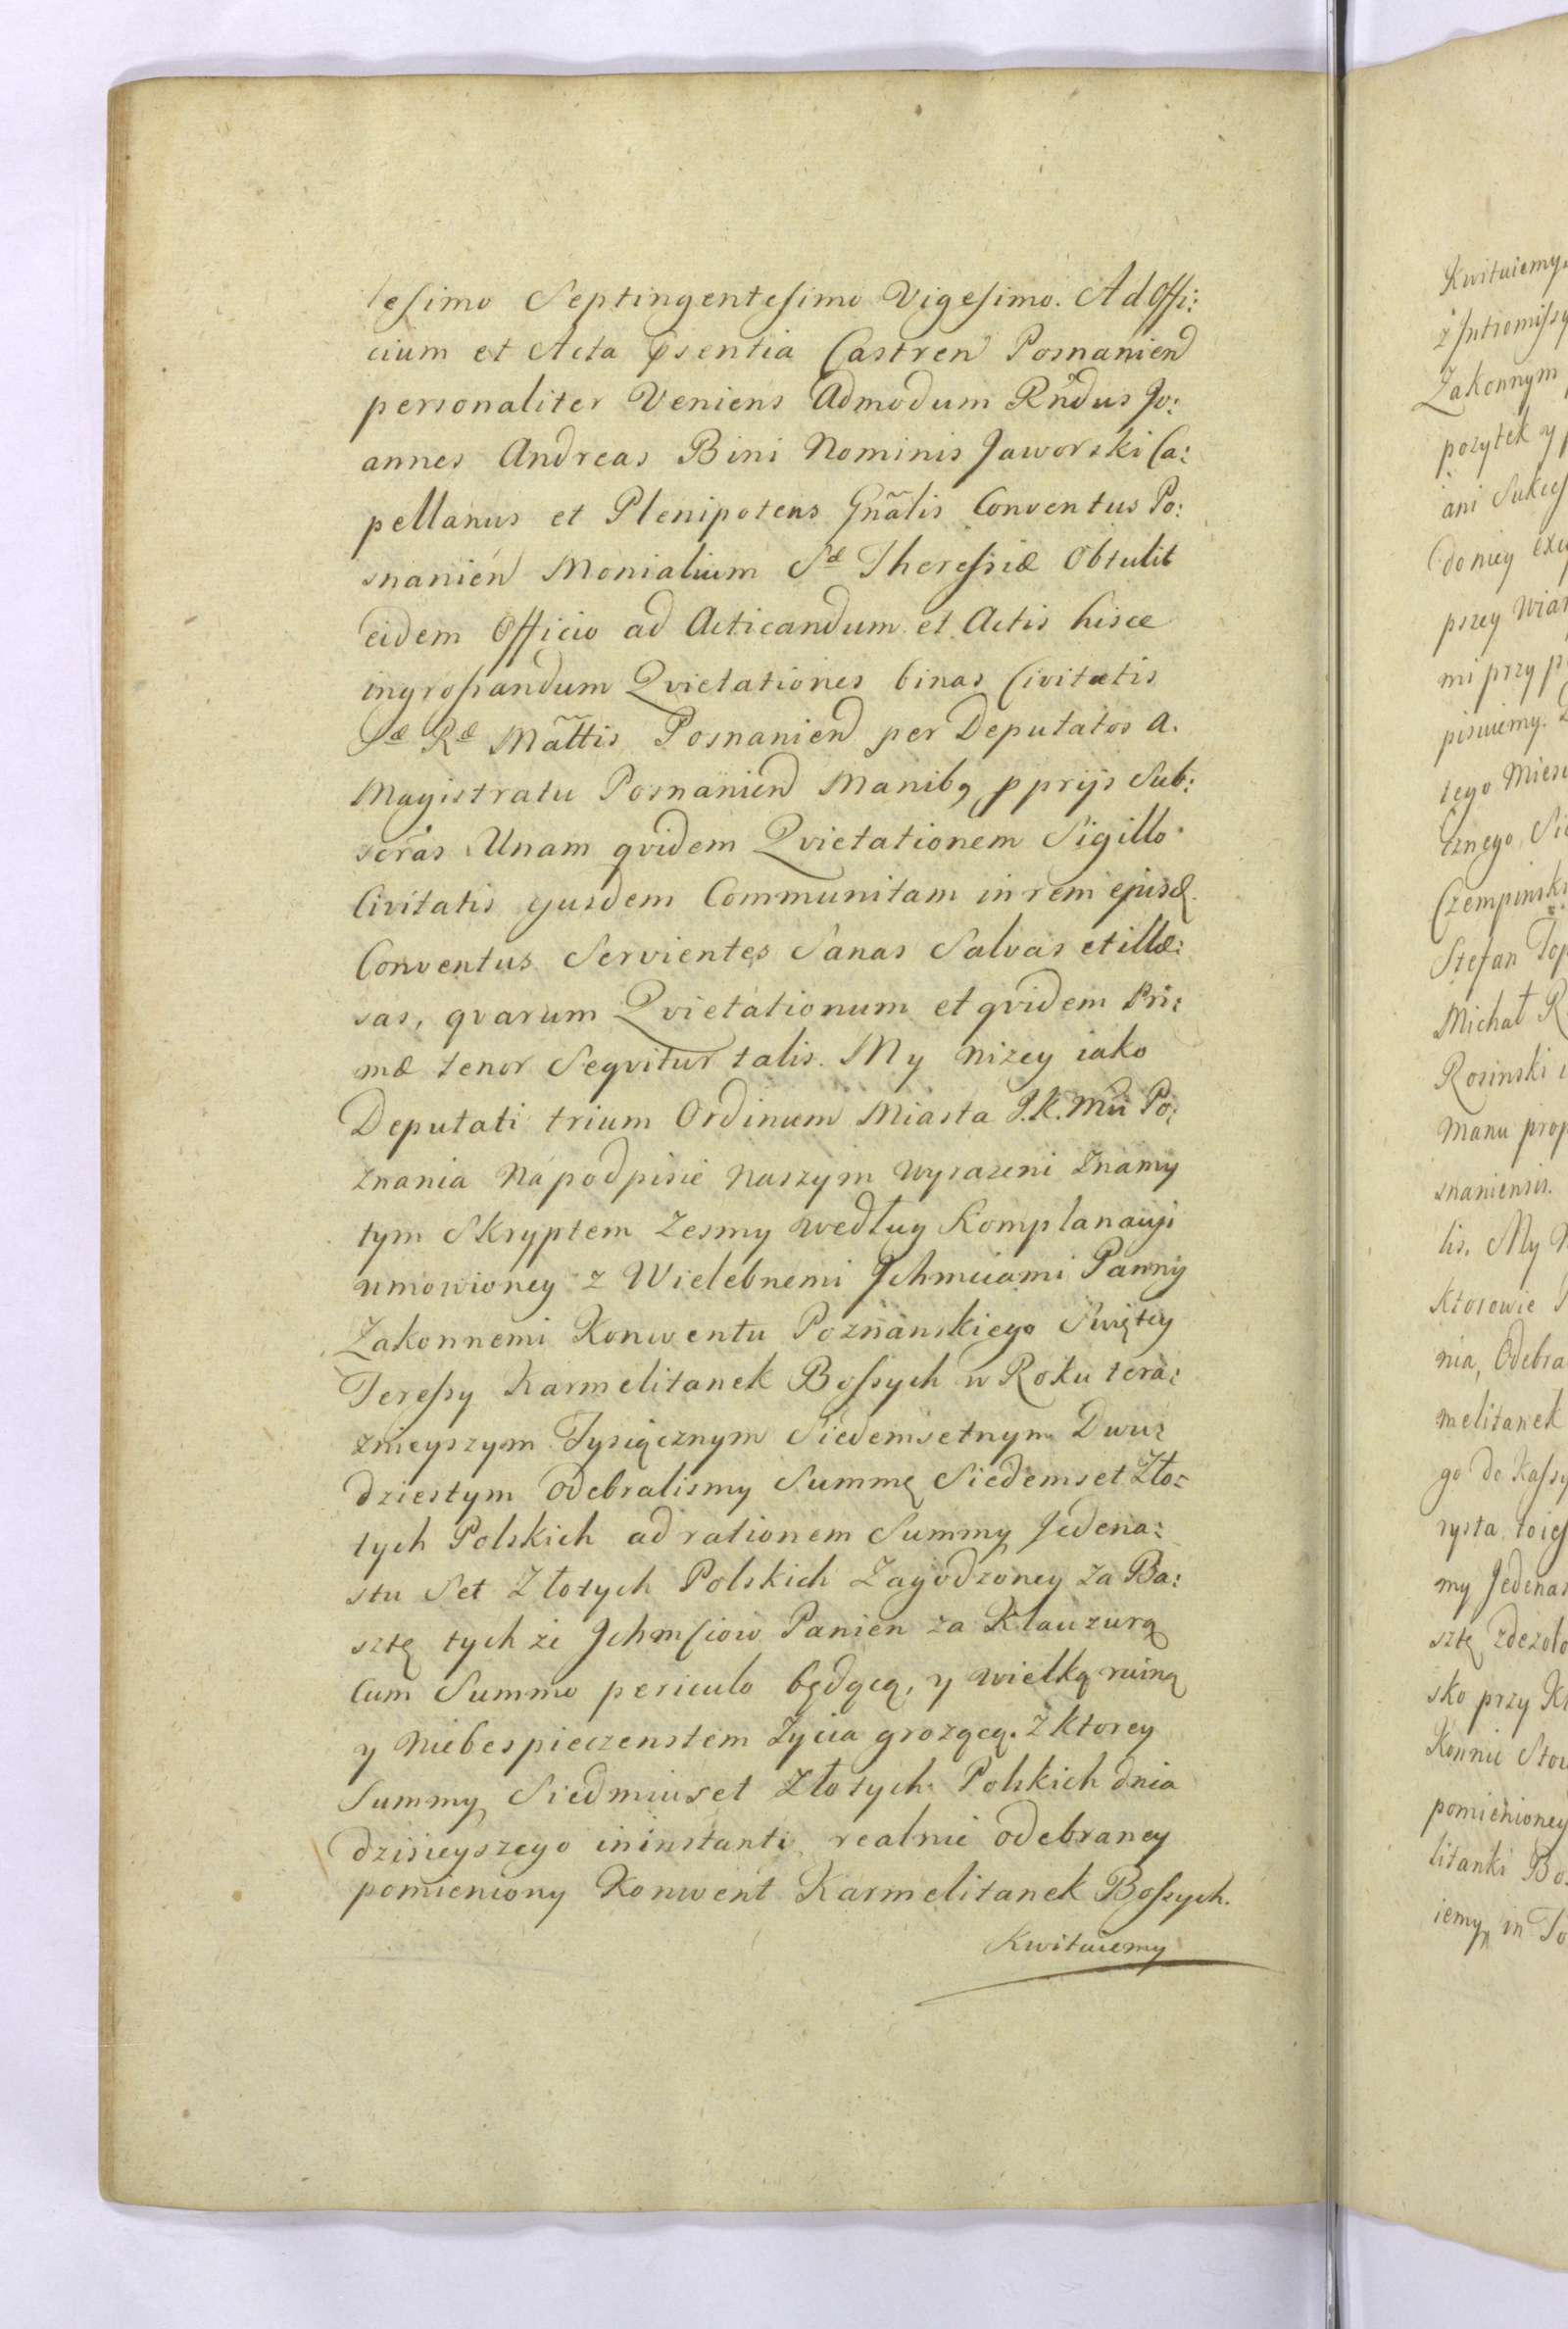 lesimo Septingentesimo Vigesimo. Ad Offi:
cium et Acta psentia Castren Posnanien
personaliter Veniens Admodum Rndus Jo:
annes Andreas Bini Nominis Jaworski Ca:
pellanus et Plenipotens Gnãlis Conventus Po:
snanien Monialium Sæ Theressiæ Obtulit
eidem Officio ad Acticandum et Actis hisce
ingrossandum Qvietationes binas Civitatis
Sæ Ræ Mãttis Posnanien per Deputatos a.
Magistratu Posnanien Manibq pprijs Sub:
scras Unam qvidem Qvietationem Sigillo
Civitatis ejusdem Communitam in rem ejusd.
Conventus Servientes Sanas Salvas et illæ:
sas, qvarum Qvietationum et qvidem Pri:
mæ tenor Seqvitur talis. My nizey iako
Deputati trium Ordinum Miasta J.K.Mci Po:
znania Na podpisie naszym wyrazeni Znamy
tym Skryptem Zesmy według Komplanacyi
umowioney z Wielebnemi Jchmciami Panny
Zakonnemi Konwentu Poznanskiego Swiętey
Teressy Karmelitanek Bossych w Roku tera:
znieyszym Tysiącznym Siedemsetnym Dwu:
dziestym odebralismy Summę Siedemset Zło:
tych Polskich ad rationem Summy Jedena:
stu Set Złotych Polskich Zagodzoney za Ba:
sztę tych ze Jchmciow Panien za Klauzurą
Cum Summo periculo będącą, y wielką ruiną
y Niebespieczenstem Zycia grozącą. Z ktorey
Summy Siedmiuset Złotych Polskich dnia
dzisieyszego in instanti realnie odebraney
pomieniony Konwent Karmelitanek Bossych.
Kwituiemy
Kwituiemy
z Intromissy
Zakonnym
pozytek y
ani Sukces
do niey
przy
mi przy
pisuiemy.
tego
cznego
Czempinski
Stefan
Michał R
Rosinski
Manu prop
snaniensis.
lis. My N
Ktorowie
nia, Odebra
melitanek
go do Kassy
rysta toies
my Jedenas
sztę zdezolo
sko przy Kl
Konnie
pomienioney
litanki Bos
iemy in To